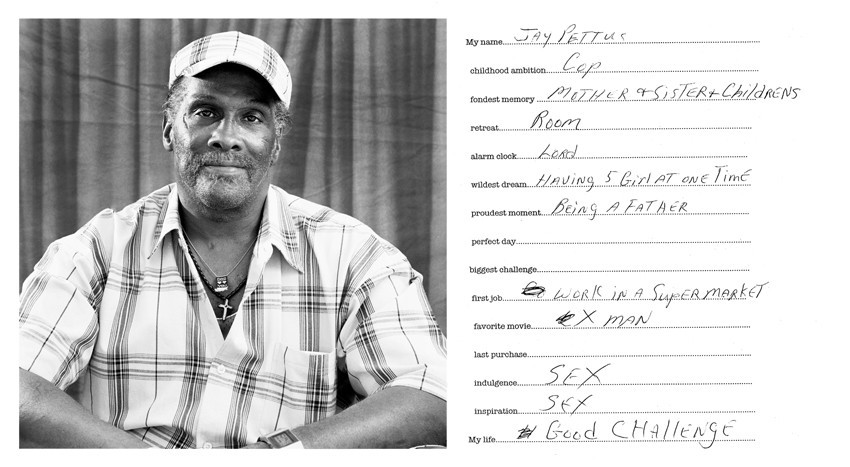 My name JAY PETTUS
childhood ambition COP
fondest memory MOTHER & SISTER + ChildRENS
retreat ROOM
alarm clock LORD
wildest dream HAVING 5 Girl AT ONE TIME
proudest moment BEING A FATHER
perfect day
biggest challenge
first job WORK IN A SUPERMARKET
favorite movie X MAN
last purchase
indulgence SEX
inspiration SEX
My life GOOd CHAllENGE